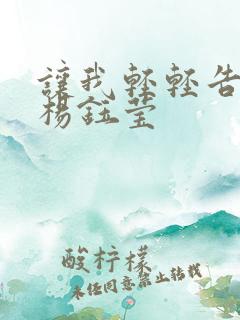 讓我輕輕告
楊鈺莹
酸柠檬
未经同意禁止转载